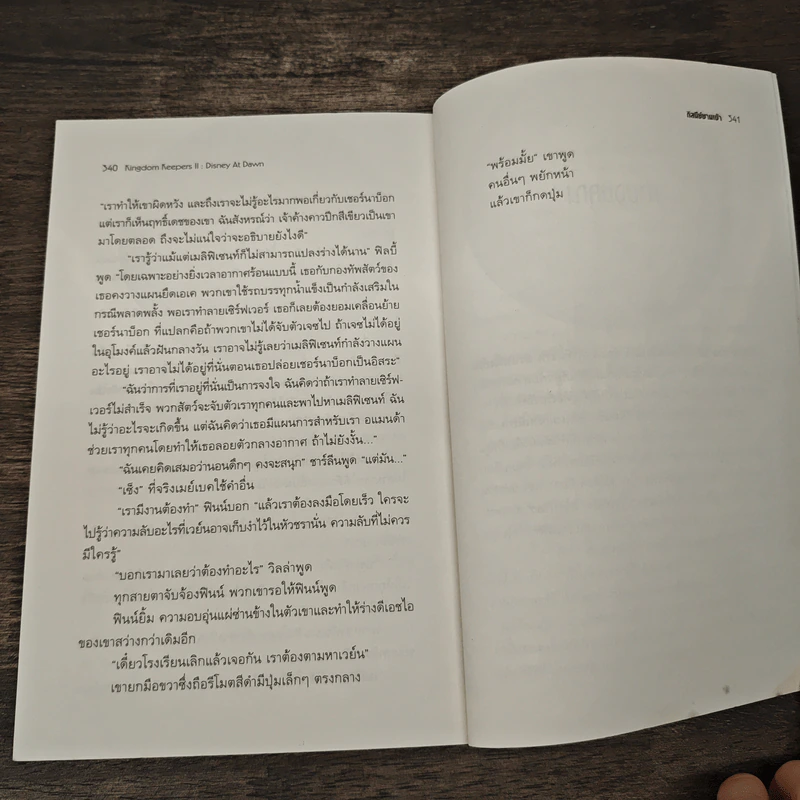 340 Kingdom Keepers II : Disney At Dawn
"เราทำให้เขาผิดหวัง และถึงเราจะไม่รู้อะไรมากพอเกี่ยวกับเชอร์นาบ็อก
แต่เราก็เห็นฤทธิ์เดชของเขา ฉันสังหรณ์ว่า เจ้าค้างคาวปีกสีเขียวเป็นเขา
มาโดยตลอด ถึงจะไม่แน่ใจว่าจะอธิบายยังไงดี"
"เรารู้ว่าแม้แต่เมลิฟิเซนท์ก็ไม่สามารถแปลงร่างได้นาน" ฟิลบี้
พูด "โดยเฉพาะอย่างยิ่งเวลาอากาศร้อนแบบนี้ เธอกับกองทัพสัตว์ของ
เธอคงวางแผนยึดเอเค พวกเขาใช้รถบรรทุกน้ำแข็งเป็นกำลังเสริมใน
กรณีพลาดพลั้ง พอเราทำลายเซิร์ฟเวอร์ เธอก็เลยต้องยอมเคลื่อนย้าย
เชอร์นาบ็อก ที่แปลกคือถ้าพวกเขาไม่ได้จับตัวเจซไป ถ้าเจซไม่ได้อยู่
ในอุโมงค์แล้วฝันกลางวัน เราอาจไม่รู้เลยว่าเมลิฟิเซนท์กำลังวางแผน
อะไรอยู่ เราอาจไม่ได้อยู่ที่นั่นตอนเธอปล่อยเชอร์นาบ็อกเป็นอิสระ"
"ฉันว่าการที่เราอยู่ที่นั่นเป็นการจงใจ ฉันคิดว่าถ้าเราทำลายเซิร์ฟ-
เวอร์ไม่สำเร็จ พวกสัตว์จะจับตัวเราทุกคนและพาไปหาเมลิฟิเซนท์ ฉัน
ไม่รู้ว่าอะไรจะเกิดขึ้น แต่ฉันคิดว่าเธอมีแผนการสำหรับเรา อแมนด้า
ช่วยเราทุกคนโดยทำให้เธอลอยตัวกลางอากาศ ถ้าไม่ยังงั้น..."
"ฉันเคยคิดเสมอว่านอนดึกๆ คงจะสนุก" ชาร์ลีนพูด "แต่มัน..."
"เซ็ง" ที่จริงเมย์เบคใช้คำอื่น
"เรามีงานต้องทำ" ฟินน์บอก "แล้วเราต้องลงมือโดยเร็ว ใครจะ
ไปรู้ว่าความลับอะไรที่เวย์นอาจเก็บงำไว้ในหัวชรานั่น ความลับที่ไม่ควร
มีใครรู้"
"บอกเรามาเลยว่าต้องทำอะไร" วิลล่าพูด
ทุกสายตาจับจ้องฟินน์ พวกเขารอให้ฟินน์พูด
ฟินน์ยิ้ม ความอบอุ่นแผ่ซ่านข้างในตัวเขาและทำให้ร่างดีเอชไอ
ของเขาสว่างกว่าเดิมอีก
"เดี๋ยวโรงเรียนเลิกแล้วเจอกัน เราต้องตามหาเวย์น"
เขายกมือขวาซึ่งถือรีโมตสีดำมีปุ่มเล็กๆ ตรงกลาง
341
"พร้อมมั้ย" เขาพูด
คนอื่นๆ พยักหน้า
แล้วเขาก็กดปุ่ม